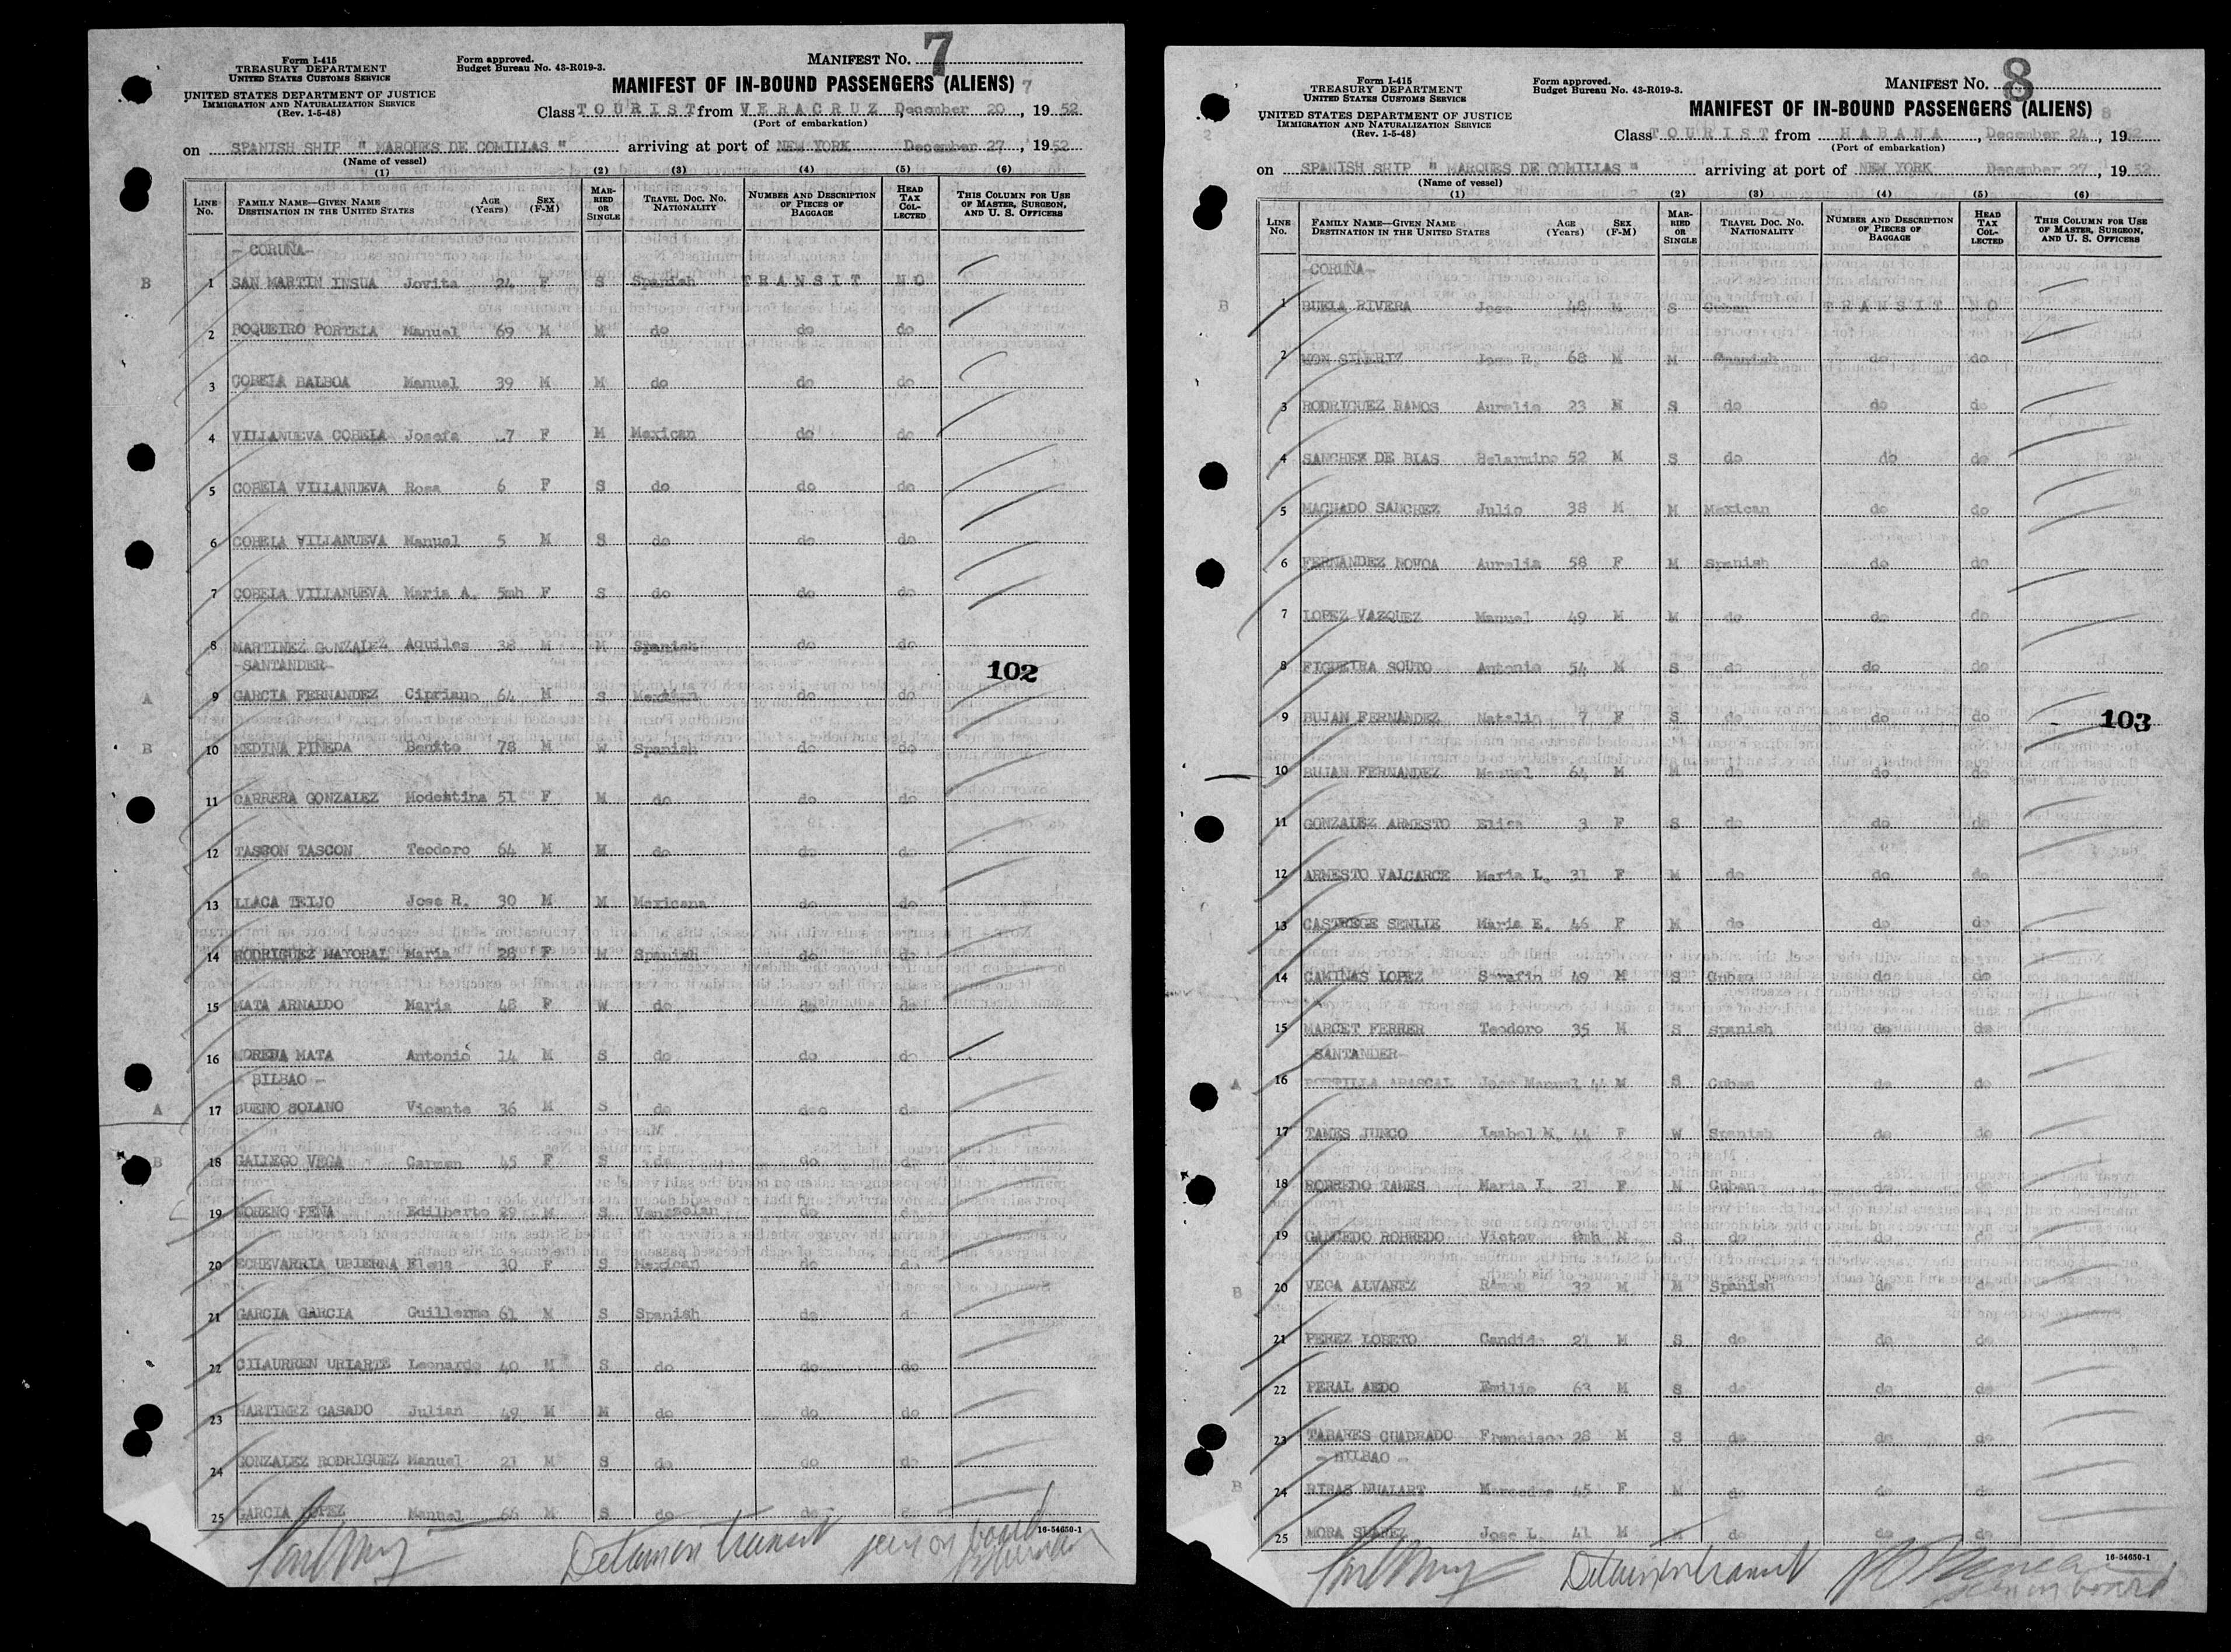 Form I-415
TREASURY DEPARTMENT
UNITED STATES CUSTOMS SERVICE
UNITED STATES DEPARTMENT OF JUSTICE
IMMIGRATION AND NATURALIZATION SERVICE
(Rev. 1-5-48)
Form approved.
Budget Bureau No. 43-R019-3.
MANIFEST No. 7
MANIFEST OF IN-BOUND PASSENGERS (ALIENS) 7
Class TOURIST from VERACRUZ, December 20, 1952
(Port of embarkation)
on SPANISH SHIP " MARQUES DE COMILLAS " arriving at port of NEW YORK December 27, 1952
(Name of vessel)
(1) (2) (3) (4) (5) (6)
LINE No. FAMILY NAME—GIVEN NAME DESTINATION IN THE UNITED STATES AGE (Years) SEX (F-M) MARRIED OR SINGLE TRAVEL DOC. No. NATIONALITY NUMBER AND DESCRIPTION OF PIECES OF BAGGAGE HEAD TAX COLLECTED THIS COLUMN FOR USE OF MASTER, SURGEON, AND U. S. OFFICERS
- CORUÑA-
B 1 SAN MARTIN INSUA Jovita 24 F S Spanish TRANSIT NO
2 BOQUEIRO PORTELA Manuel 69 M M do do do
3 COBELA BALBOA Manuel 39 M M do do do
4 VILLANUEVA COBELA Josefa F M Mexican do do
5 COBELA VILLANUEVA Rosa 6 F S do do do
6 COBELA VILLANUEVA Manuel 5 M S do do do
7 COBELA VILLANUEVA Maria A. 5mh F S do do do
8 MARTINEZ GONZALEZ Aquiles 38 M M Spanish do do
-SANTANDER-
102
A 9 GARCIA FERNANDEZ Cipriano 64 M S Mexican do do
B 10 MEDINA PIÑEDA Benito 78 M W Spanish do do
11 CARRERA GONZALEZ Modestina 51 F M do do do
12 TASCON TASCON Teodoro 64 M M do do do
13 LLACA TEIJO Jose R. 30 M M Mexicana do do
14 RODRIGUEZ MAYORAL Maria 28 F M Spanish do do
15 MATA ARNALDO Maria 48 F W do do do
16 MORENA MATA Antonio 14 M S do do do
- BILBAO -
A 17 BUENO SOLANO Vicente 36 M S do do do
B 18 GALLEGO VEGA Carmen 45 F S do do do
19 MORENO PEÑA Edilberto 29 M S Venezolan do do
20 ECHEVARRIA UBIERNA Elena 30 F S Mexican do do
21 GARCIA GARCIA Guillermo 61 M S Spanish do do
22 CILAURREN URIARTE Leonardo 40 M S do do do
23 MARTINEZ CASADO Julian 49 M M do do do
24 GONZALEZ RODRIGUEZ Manuel 21 M S do do do
25 GARCIA LOPEZ Manuel 66 M S do do do
16-54650-1
Detain in transit seen on board
Form I-415
TREASURY DEPARTMENT
UNITED STATES CUSTOMS SERVICE
UNITED STATES DEPARTMENT OF JUSTICE
IMMIGRATION AND NATURALIZATION SERVICE
(Rev. 1-5-48)
Form approved.
Budget Bureau No. 43-R019-3.
MANIFEST No. 8
MANIFEST OF IN-BOUND PASSENGERS (ALIENS) 8
Class TOURIST from HABANA, December 24, 1952
(Port of embarkation)
on SPANISH SHIP " MARQUES DE COMILLAS " arriving at port of NEW YORK December 27, 1952
(Name of vessel)
(1) (2) (3) (4) (5) (6)
LINE No. FAMILY NAME—GIVEN NAME DESTINATION IN THE UNITED STATES AGE (Years) SEX (F-M) MARRIED OR SINGLE TRAVEL DOC. No. NATIONALITY NUMBER AND DESCRIPTION OF PIECES OF BAGGAGE HEAD TAX COLLECTED THIS COLUMN FOR USE OF MASTER, SURGEON, AND U. S. OFFICERS
-CORUÑA-
B 1 BUELA RIVERA Jose 48 M S Cuban TRANSIT NO
2 MON Jose R. 68 M M Spanish do do
3 RODRIGUEZ RAMOS Aurelio 23 M S do do do
4 SANCHEZ DE BLAS Belarmino 52 M S do do do
5 MACHADO SANCHEZ Julio 38 M M Mexican do do
6 FERNANDEZ NOVOA Aurelia 58 F M Spanish do do
7 LOPEZ VAZQUEZ Manuel 49 M M do do do
8 FIGUEIRA SOUTO Antonio 54 M S do do do
9 BUJAN FERNANDEZ Natalia 7 F S do do do
103
10 BUJAN FERNANDEZ Manuel 64 M M do do do
11 GONZALEZ ARMESTO Elisa 3 F S do do do
12 ARMESTO VALCARCE Maria L. 31 F M do do do
13 CASTREGE SENLLE Maria E. 46 F M do do do
14 CAMINAS LOPEZ Serafin 49 M S Cuban do do
15 MARCET FERRER Teodoro 35 M S Spanish do do
-SANTANDER-
A 16 PORTILLA ABASCAL Jose Manuel 44 M S Cuban do do
17 TAMES JUNCO Isabel M. 44 F W Spanish do do
18 ROBREDO TAMES Maria I. 21 F M Cuban do do
19 GANCEDO ROBREDO Victor M S do do do
B 20 VEGA ALVAREZ Ramon 32 M M Spanish do do
21 PEREZ LOSETO Candido 21 M S do do do
22 PERAL AEDO Emilio 63 M S do do do
23 TABARES CUADRADO Francisco 28 M S do do do
- BILBAO -
B 24 RIBAS MUALART Mercedes 45 F M do do do
25 MORA SUAREZ Jose L. 41 M M do do do
16-54650-1
Detain in transit seen on board